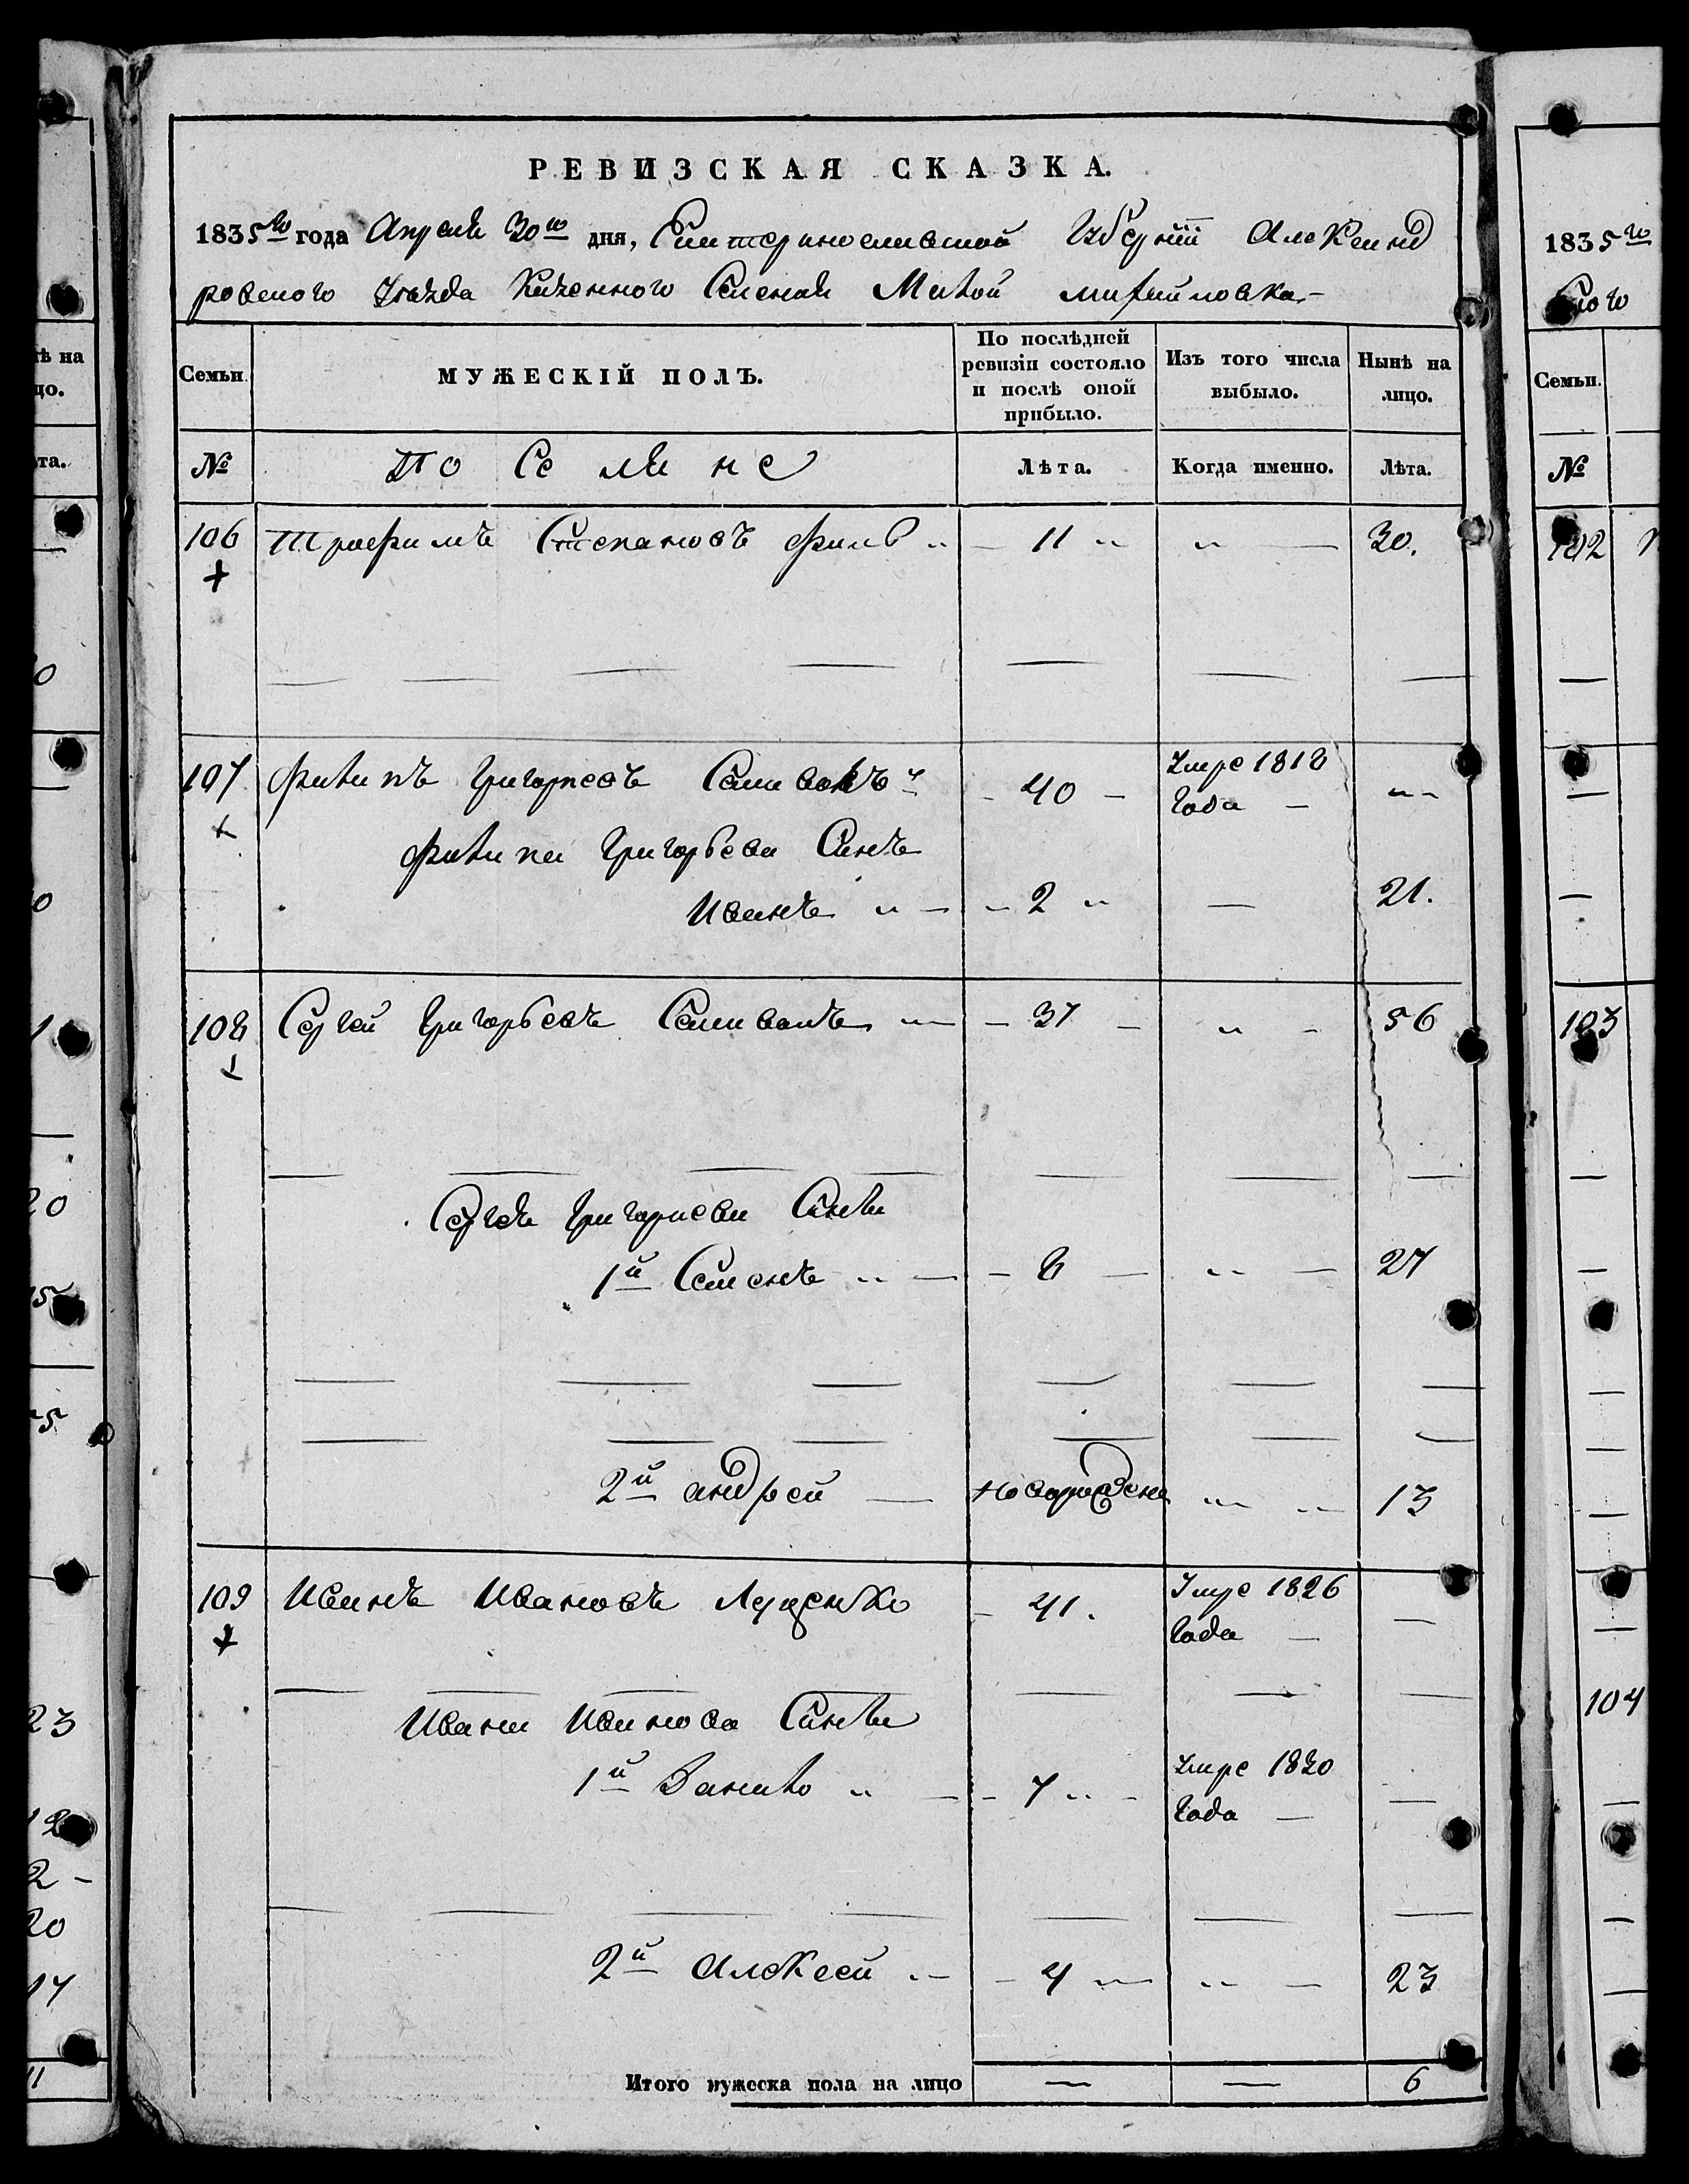 РЕВИЗСКАЯ СКАЗКА.
1835го года Апреля 30го дня, Екатеринославской Губерніи Александ
ровского Уезда Казенного Селения Малой михайловка
Семьи. МУЖЕСКІЙ ПОЛЪ. По послѣдней ревизіи состояло и послѣ оной прибыло. Изъ того числа выбыло. Нынѣ на лицо.
№ По Селяне Лѣта. Когда именно. Лѣта.
106 Трофимъ Степановъ 11 30.
107 Филипъ Григориевъ 40 Умре 1818 года
Филипа Григорьева Синъ
Иванъ 2 21.
108 Сергей Григорьевъ 37 56
Сергея Григориева Сини
1й Семенъ 8 27
2й андрей новорожденъ 13
109 Иванъ Ивановъ Луценко 41. Умре 1826 года
Ивана Иванова Сини
1й Данило 7 Умре 1830 года
2й Алексей 4 23
Итого мужеска пола на лицо 6
1835го
Семьи.
№
102
103
104